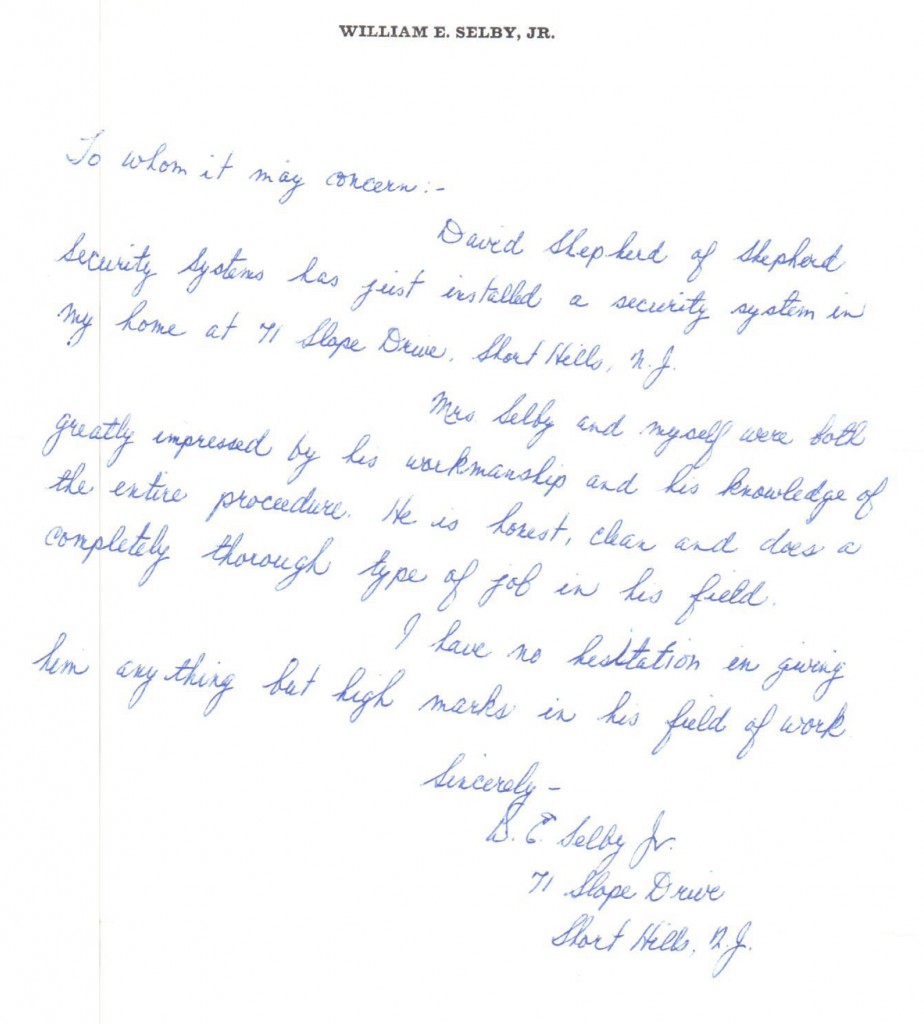 WILLIAM E. SELBY, JR.
To whom it may concern:-
David Shepherd of Shepherd
Security Systems has just installed a security system in
my home at 71 Slope Drive, Short Hills, N.J.
Mrs. Selby and myself were both
greatly impressed by his workmanship and his knowledge of
the entire proceedure. He is honest, clean and does a
completely thorough type of job in his field.
I have no hesitation in giving
him anything but high marks in his field of work
Sincerely -
W. E. Selby Jr.
71 Slope Drive
Short Hills, N.J.